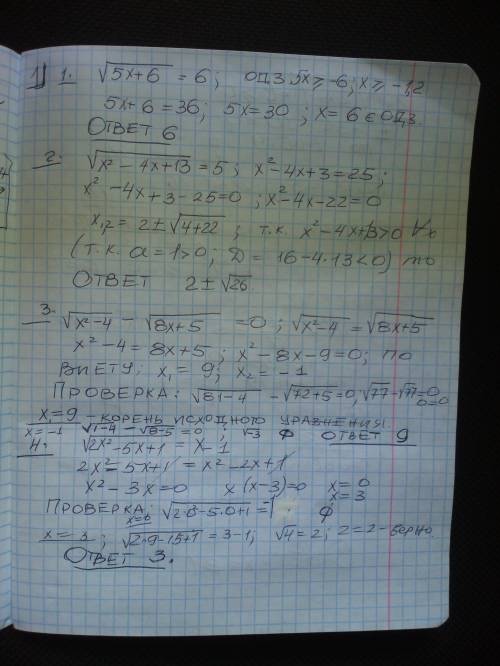 1) 1. √5x+6 = 6; ОДЗ 5x ≥ -6; x ≥ -1,2
5x+6=36; 5x=30; x=6 ∈ ОДЗ.
ОТВЕТ 6
2. √x²-4x+13 = 5; x²-4x+3=25;
x²-4x+3-25=0; x²-4x-22=0
x₁,₂ = 2±√4+22; т.к. x²-4x+13>0 ∀x
(т.к. a=1>0; D=16-4·13<0) то
ОТВЕТ 2±√26
3. √x²-4 - √8x+5 =0; √x²-4 = √8x+5
x²-4=8x+5; x²-8x-9=0; по
ВИЕТУ: x₁=9; x₂=-1
ПРОВЕРКА: √81-4 - √72+5 =0; √77-√77=0
0=0
x₁=9 - корень исходного уравнения
x=-1 √1-4 - √-8+5 =0; √-3 ∅ ОТВЕТ 9
4. √2x²-5x+1 = x-1
2x²-5x+1 = x²-2x+1
x²-3x=0 x(x-3)=0 x=0
x=3
ПРОВЕРКА: x=0 √2·0-5·0+1 =-1 ∅
x=3; √2·9-15+1 = 3-1; √4=2; 2=2-верно
ОТВЕТ 3.